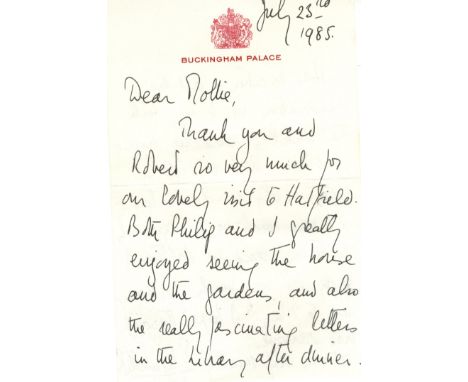 July 23rd
1985.
BUCKINGHAM PALACE
Dear Mollie,
Thank you and
Robert so very much for
our lovely visit to Hatfield.
Both Philip and I greatly
enjoyed seeing the house
and the gardens, and also
the really fascinating letters
in the library after dinner.